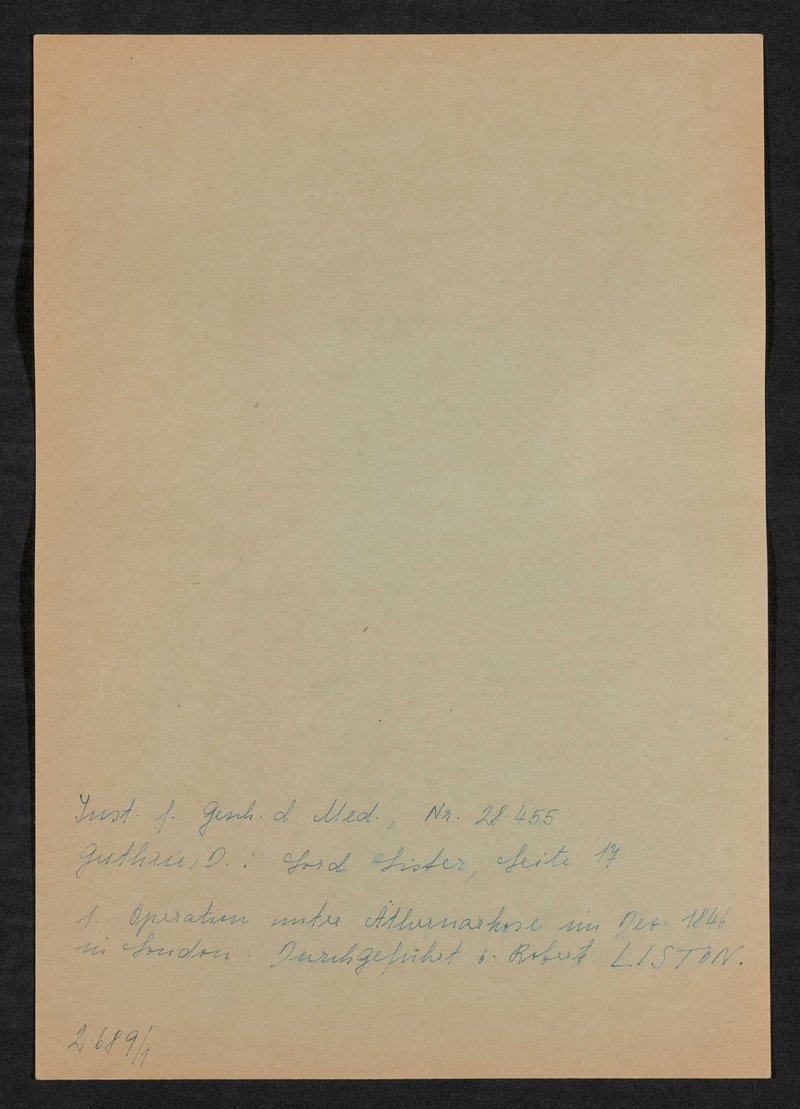 Inst. f. Gesch. d. Med., Nr. 28.455
Guthrie, D.: Lord Lister, Seite 17
1. Operation unter Äthernarkose im Dez. 1846
in London. Durchgeführt v. Robert LISTON.
2.689/1